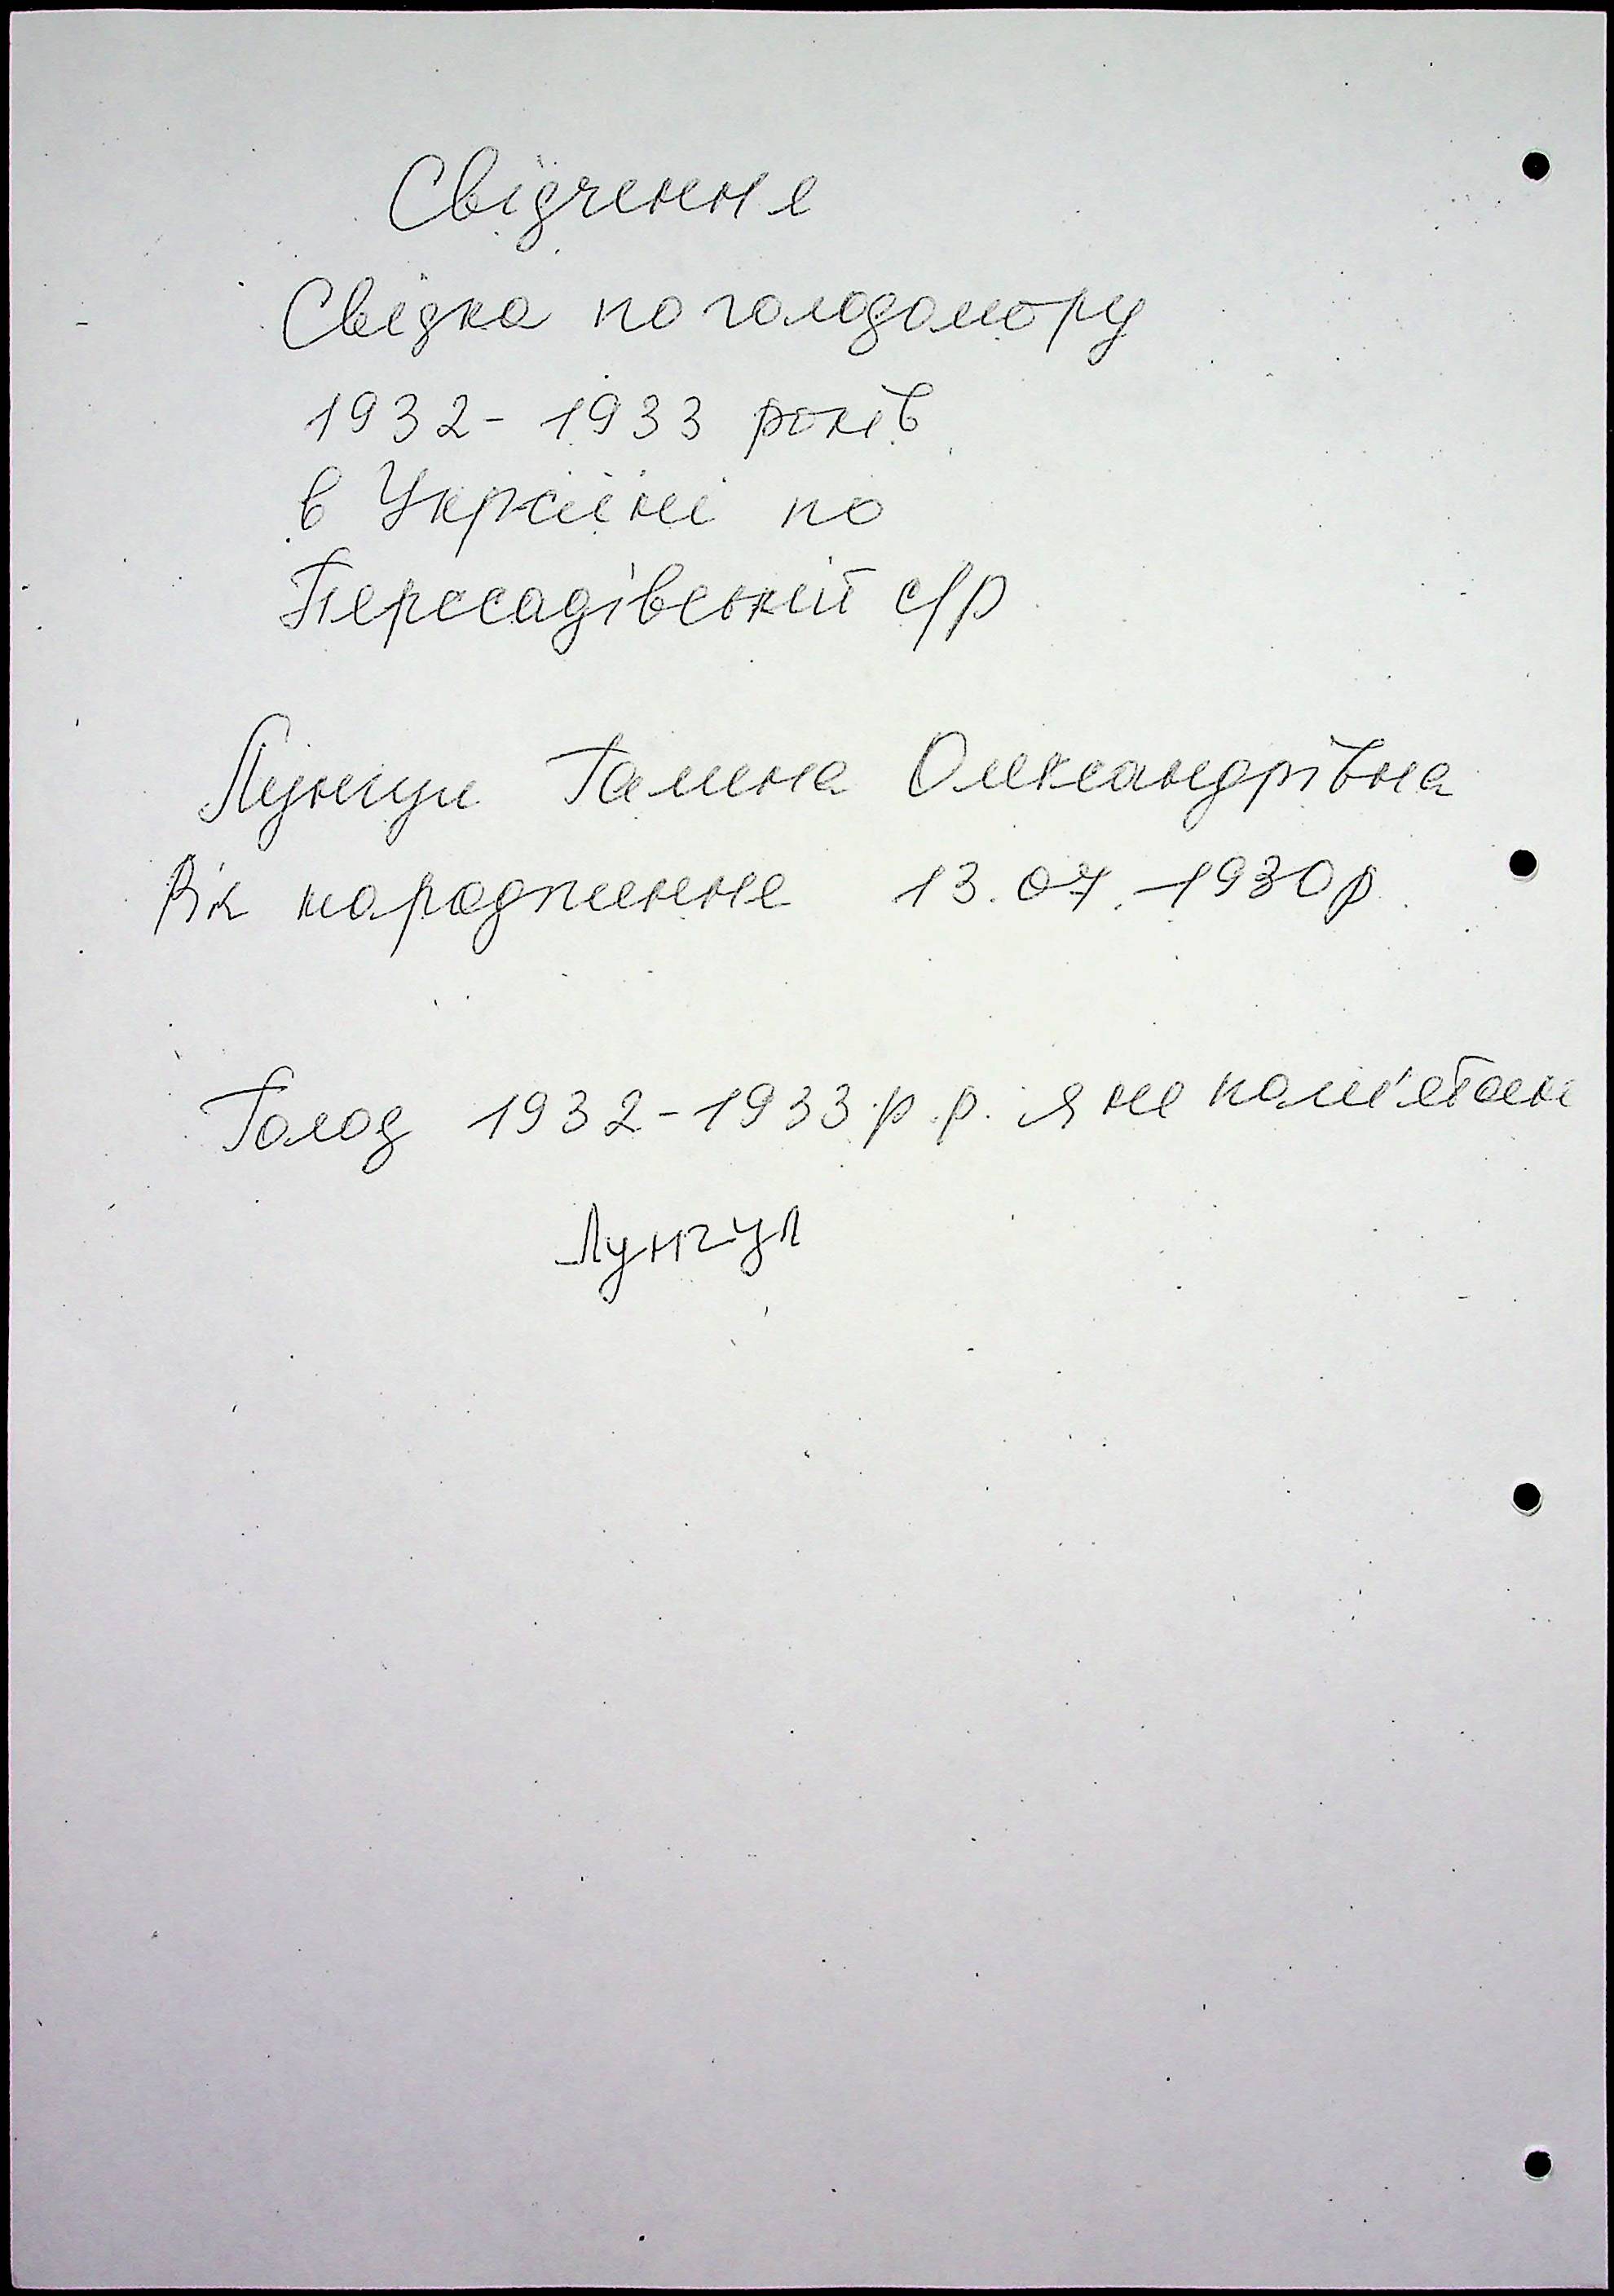 Свідчення
Свідка по голодомору
1932-1933 років
в Україні по
Пересадівській с/р
Лунгул Галина Олександрівна
Рік народження 13.07.1930р.
Голод 1932-1933 р.р. я не пам'ятаю
Лунгул